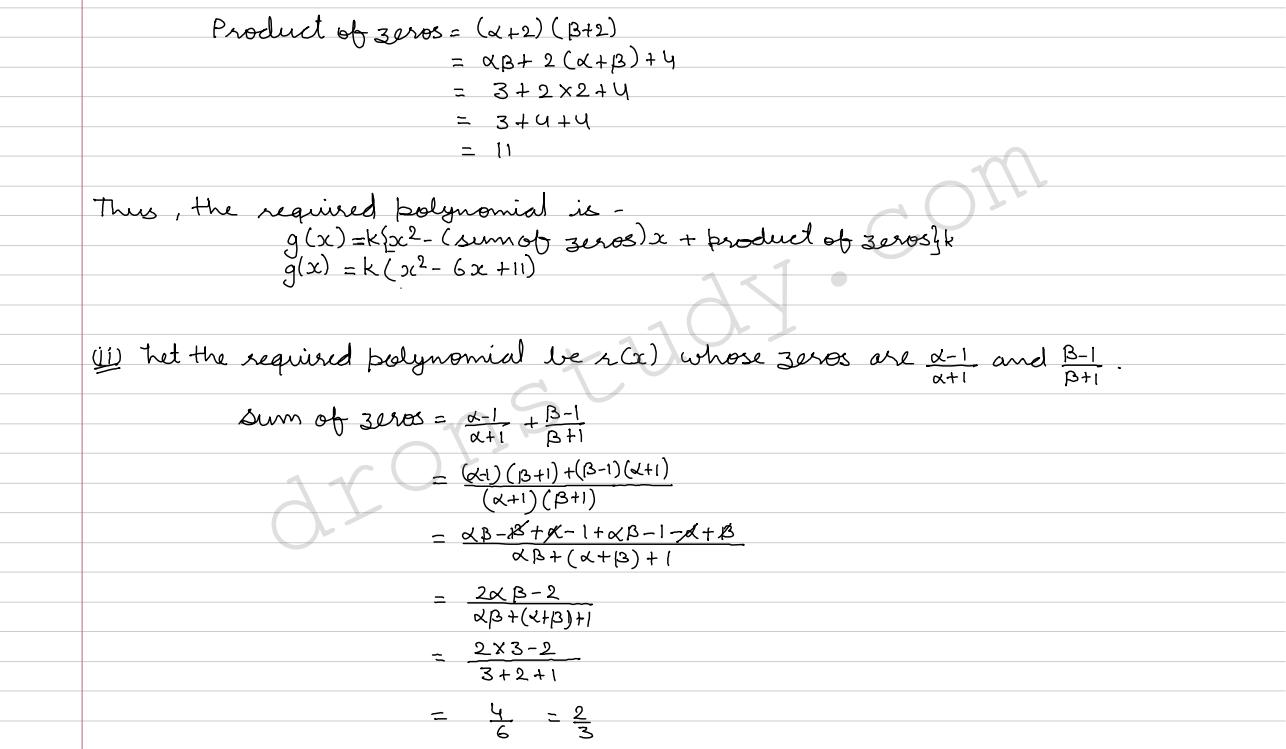 Product of zeros = (α+2)(β+2)
= αβ + 2(α+β)+4
= 3+2×2+4
= 3+4+4
= 11
Thus, the required polynomial is -
g(x)=k{x²-(sum of zeros)x + product of zeros}k
g(x) = k(x²- 6x +11)
(ii) Let the required polynomial be r(x) whose zeros are (α-1)/(α+1) and (β-1)/(β+1) .
Sum of zeros = (α-1)/(α+1) + (β-1)/(β+1)
= ((α-1)(β+1)+(β-1)(α+1))/((α+1)(β+1))
= (αβ-β+α-1+αβ-1-α+β)/(αβ+(α+β)+1)
= (2αβ-2)/(αβ+(α+β)+1)
= (2×3-2)/(3+2+1)
= 4/6 = 2/3
dronstudy.com